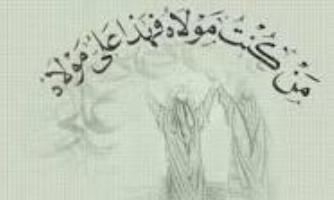 مَنْ كُنْتُ مَوْلَاهُ فَهٰذَا عَلِيٌّ مَوْلَاهُ